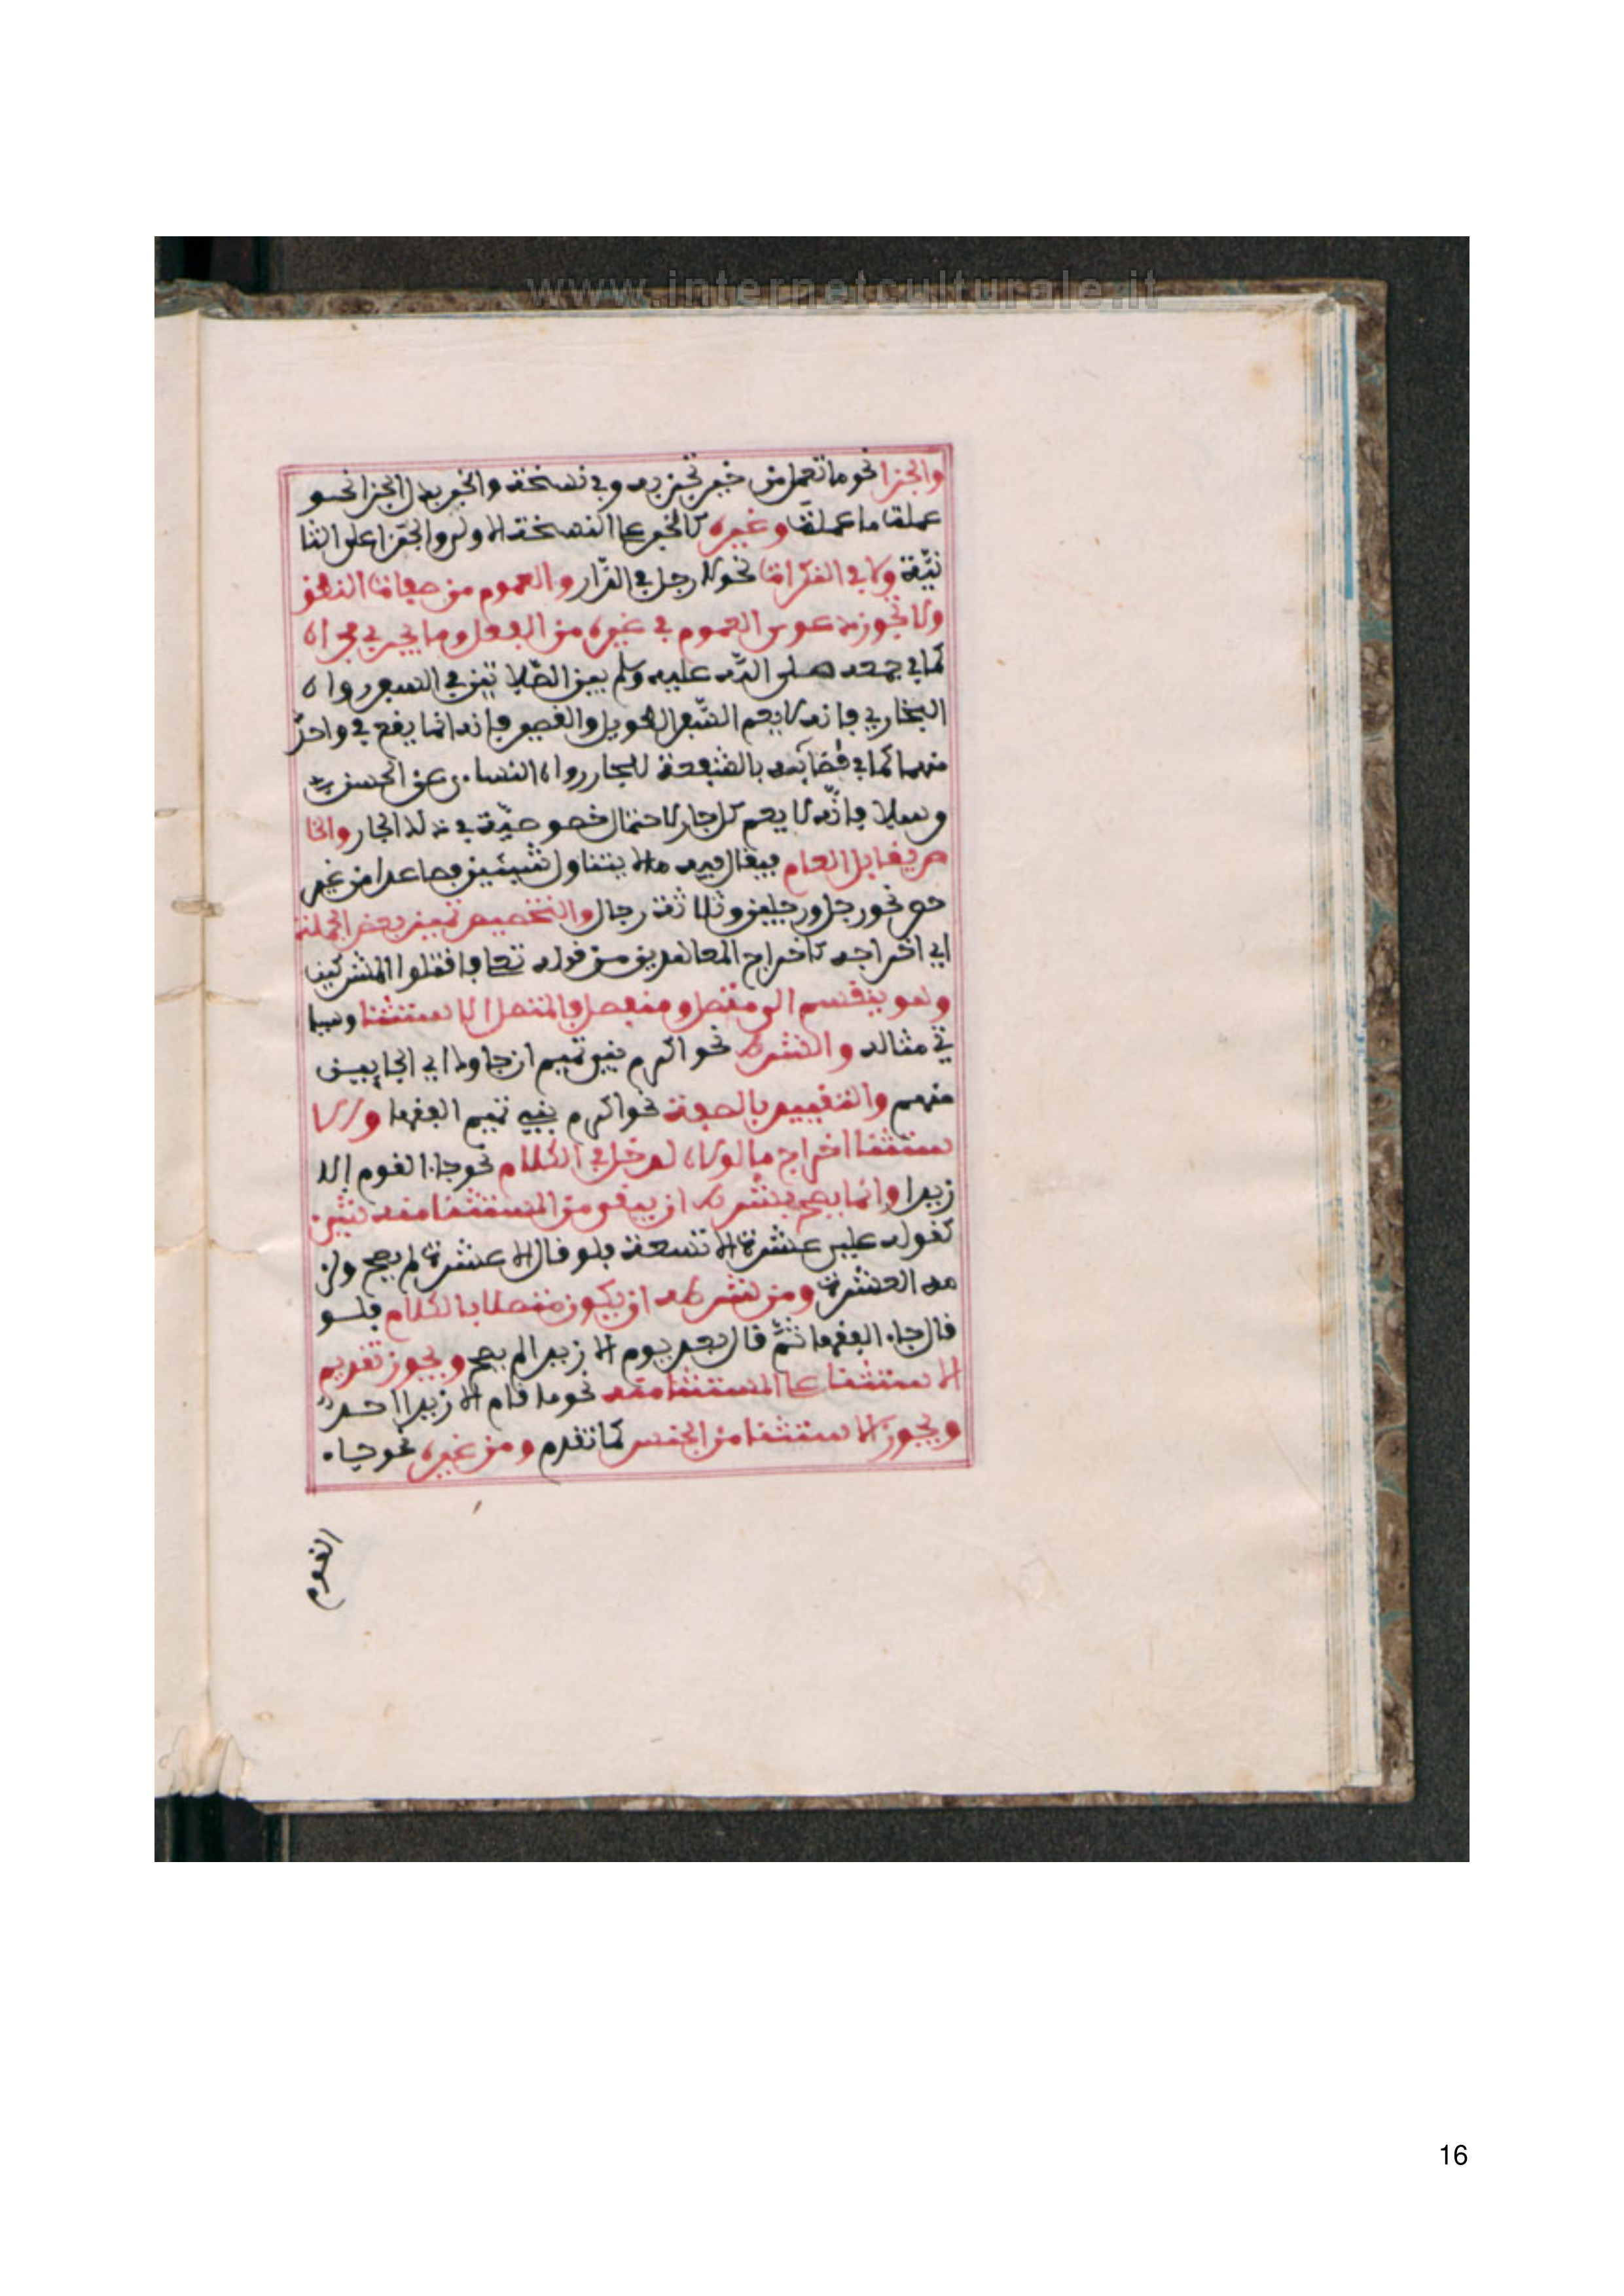 www.internetculturale.it
والجزا نحو ما تعمل من خير تجز به وفي نسخة والخبر بدل الجزا نحو
عملت ما عملت وغيره كالخبر على النسخة الاولى والجزا على الثا
نية ولا في النكرات نحو لا رجل في الدار والعموم من صفات النطق
ولا تجوز دعوى العموم في غيره من الفعل وما يجري مجراه
كما في جمعه صلى الله عليه وسلم بين الصلاتين في السفر رواه
البخاري فإنه لا يعم السفر الطويل والقصير فإنه انما يقع في واحد
منهما كما في قضائه بالشفعة للجار رواه النساءي عن الحسن
مرسلا فإنه لا يعم كل جار لاحتمال خصوصية في ذلك الجار والخا
ص يقابل العام فيقال فيه ما لا يتناول شيئين فصاعدا من غير
حصر نحو رجل ورجلين وثلاثة رجال والتخصيص تمييز بعض الجملة
اي اخراجه كاخراج المعاهدين من قوله تعالى فاقتلوا المشركين
وهو ينقسم الى متصل ومنفصل فالمتصل الاستثنا وسيا
تي مثاله والشرط نحو اكرم بني تميم ان جاوك اي الجايين
منهم والتقييد بالصفة نحو اكرم بني تميم الفقها والا
ستثنا اخراج ما لولاه لدخل في الكلام نحو جاء القوم الا
زيدا وانما يصح بشرط ان يبقى من المستثنا منه شيء
كقوله علي عشرة الا تسعة فلو قال الا عشرة لم يصح ولز
مه العشرة ومن شرطه ان يكون متصلا بالكلام فلو
قال جاء الفقها ثم قال بعد يوم الا زيدا لم يصح ويجوز تقديم
الاستثنا على المستثنا منه نحو ما قام الا زيدا احد
ويجوز الاستثنا من الجنس كما تقدم ومن غيره نحو جاء
القوم
16